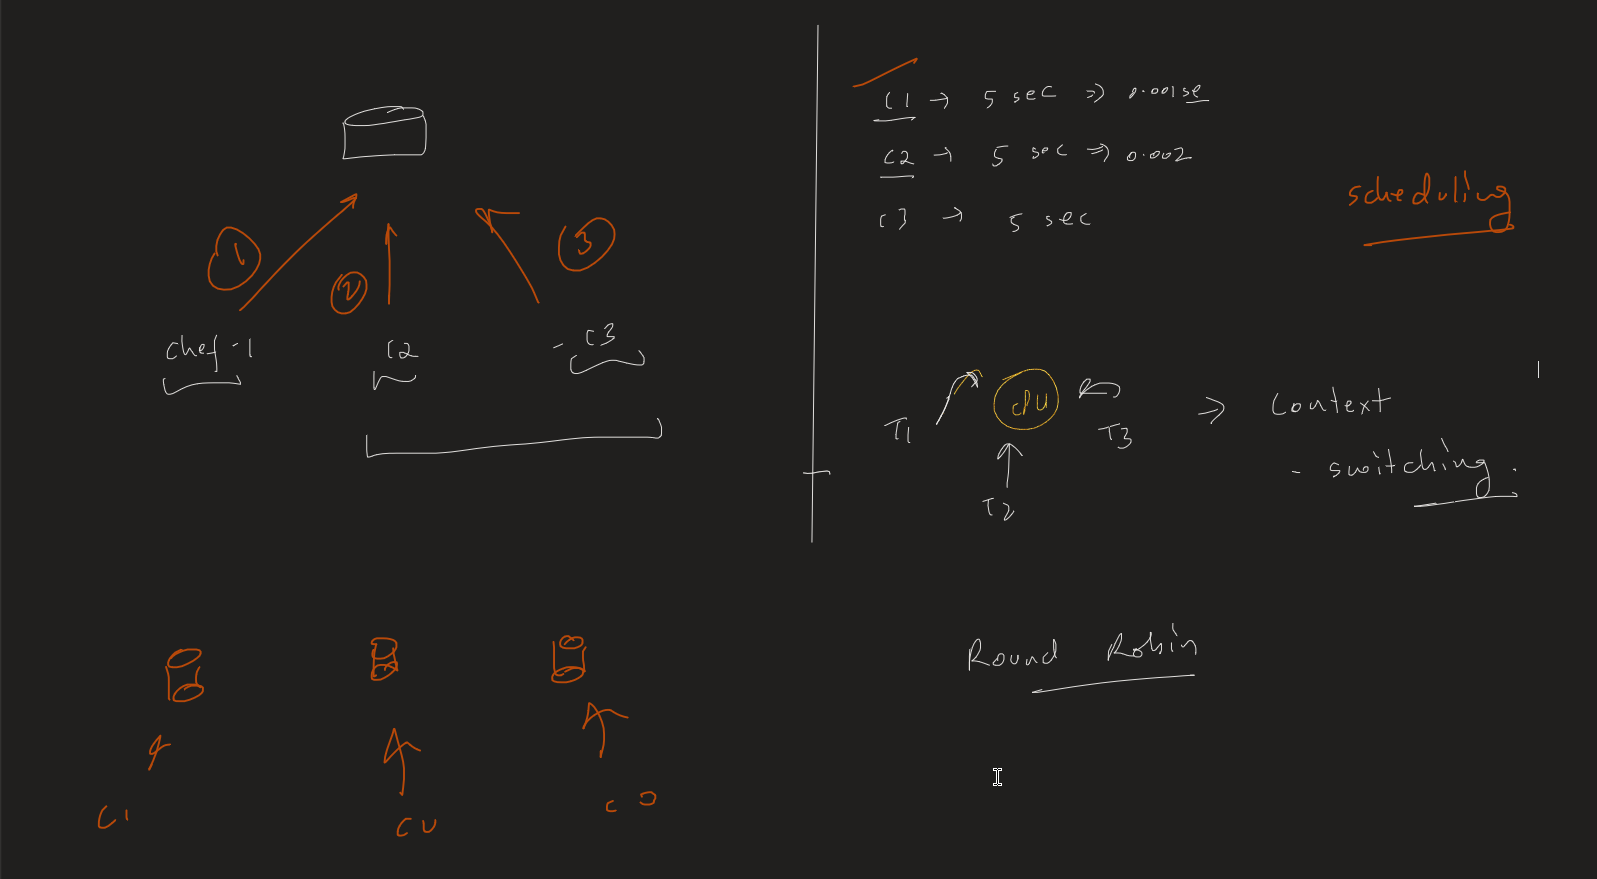 1
2
3
chef-1
C2
- C3
C1 → 5 sec ⇒ 0.001se
C2 → 5 sec ⇒ 0.002
C3 → 5 sec
scheduling
T1
CPU
T3
T2
⇒ context
- switching.
Round Robin
C1